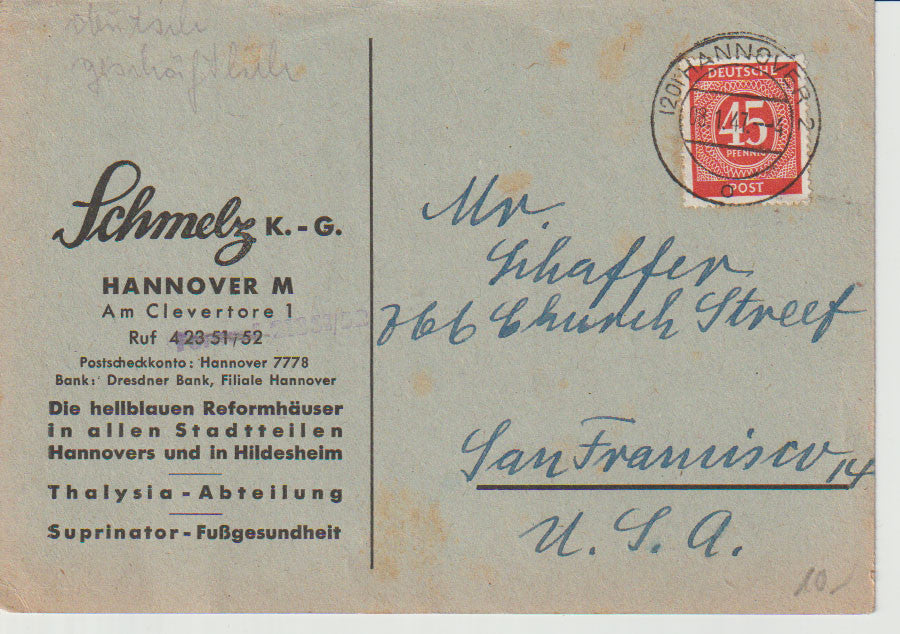 deutsche
Schmelz K.-G.
HANNOVER M
Am Clevertore 1
Ruf 4 23 51/52
Postscheckkonto: Hannover 7778
Bank: Dresdner Bank, Filiale Hannover
Die hellblauen Reformhäuser
in allen Stadtteilen
Hannovers und in Hildesheim
Thalysia - Abteilung
Suprinator - Fußgesundheit
(20) HANNOVER 2
1.47.-4
a
DEUTSCHE
45
PFENNIG
POST
Mr.
Schaffer
366 Church Street
San Francisco 14
U. S. A.
10